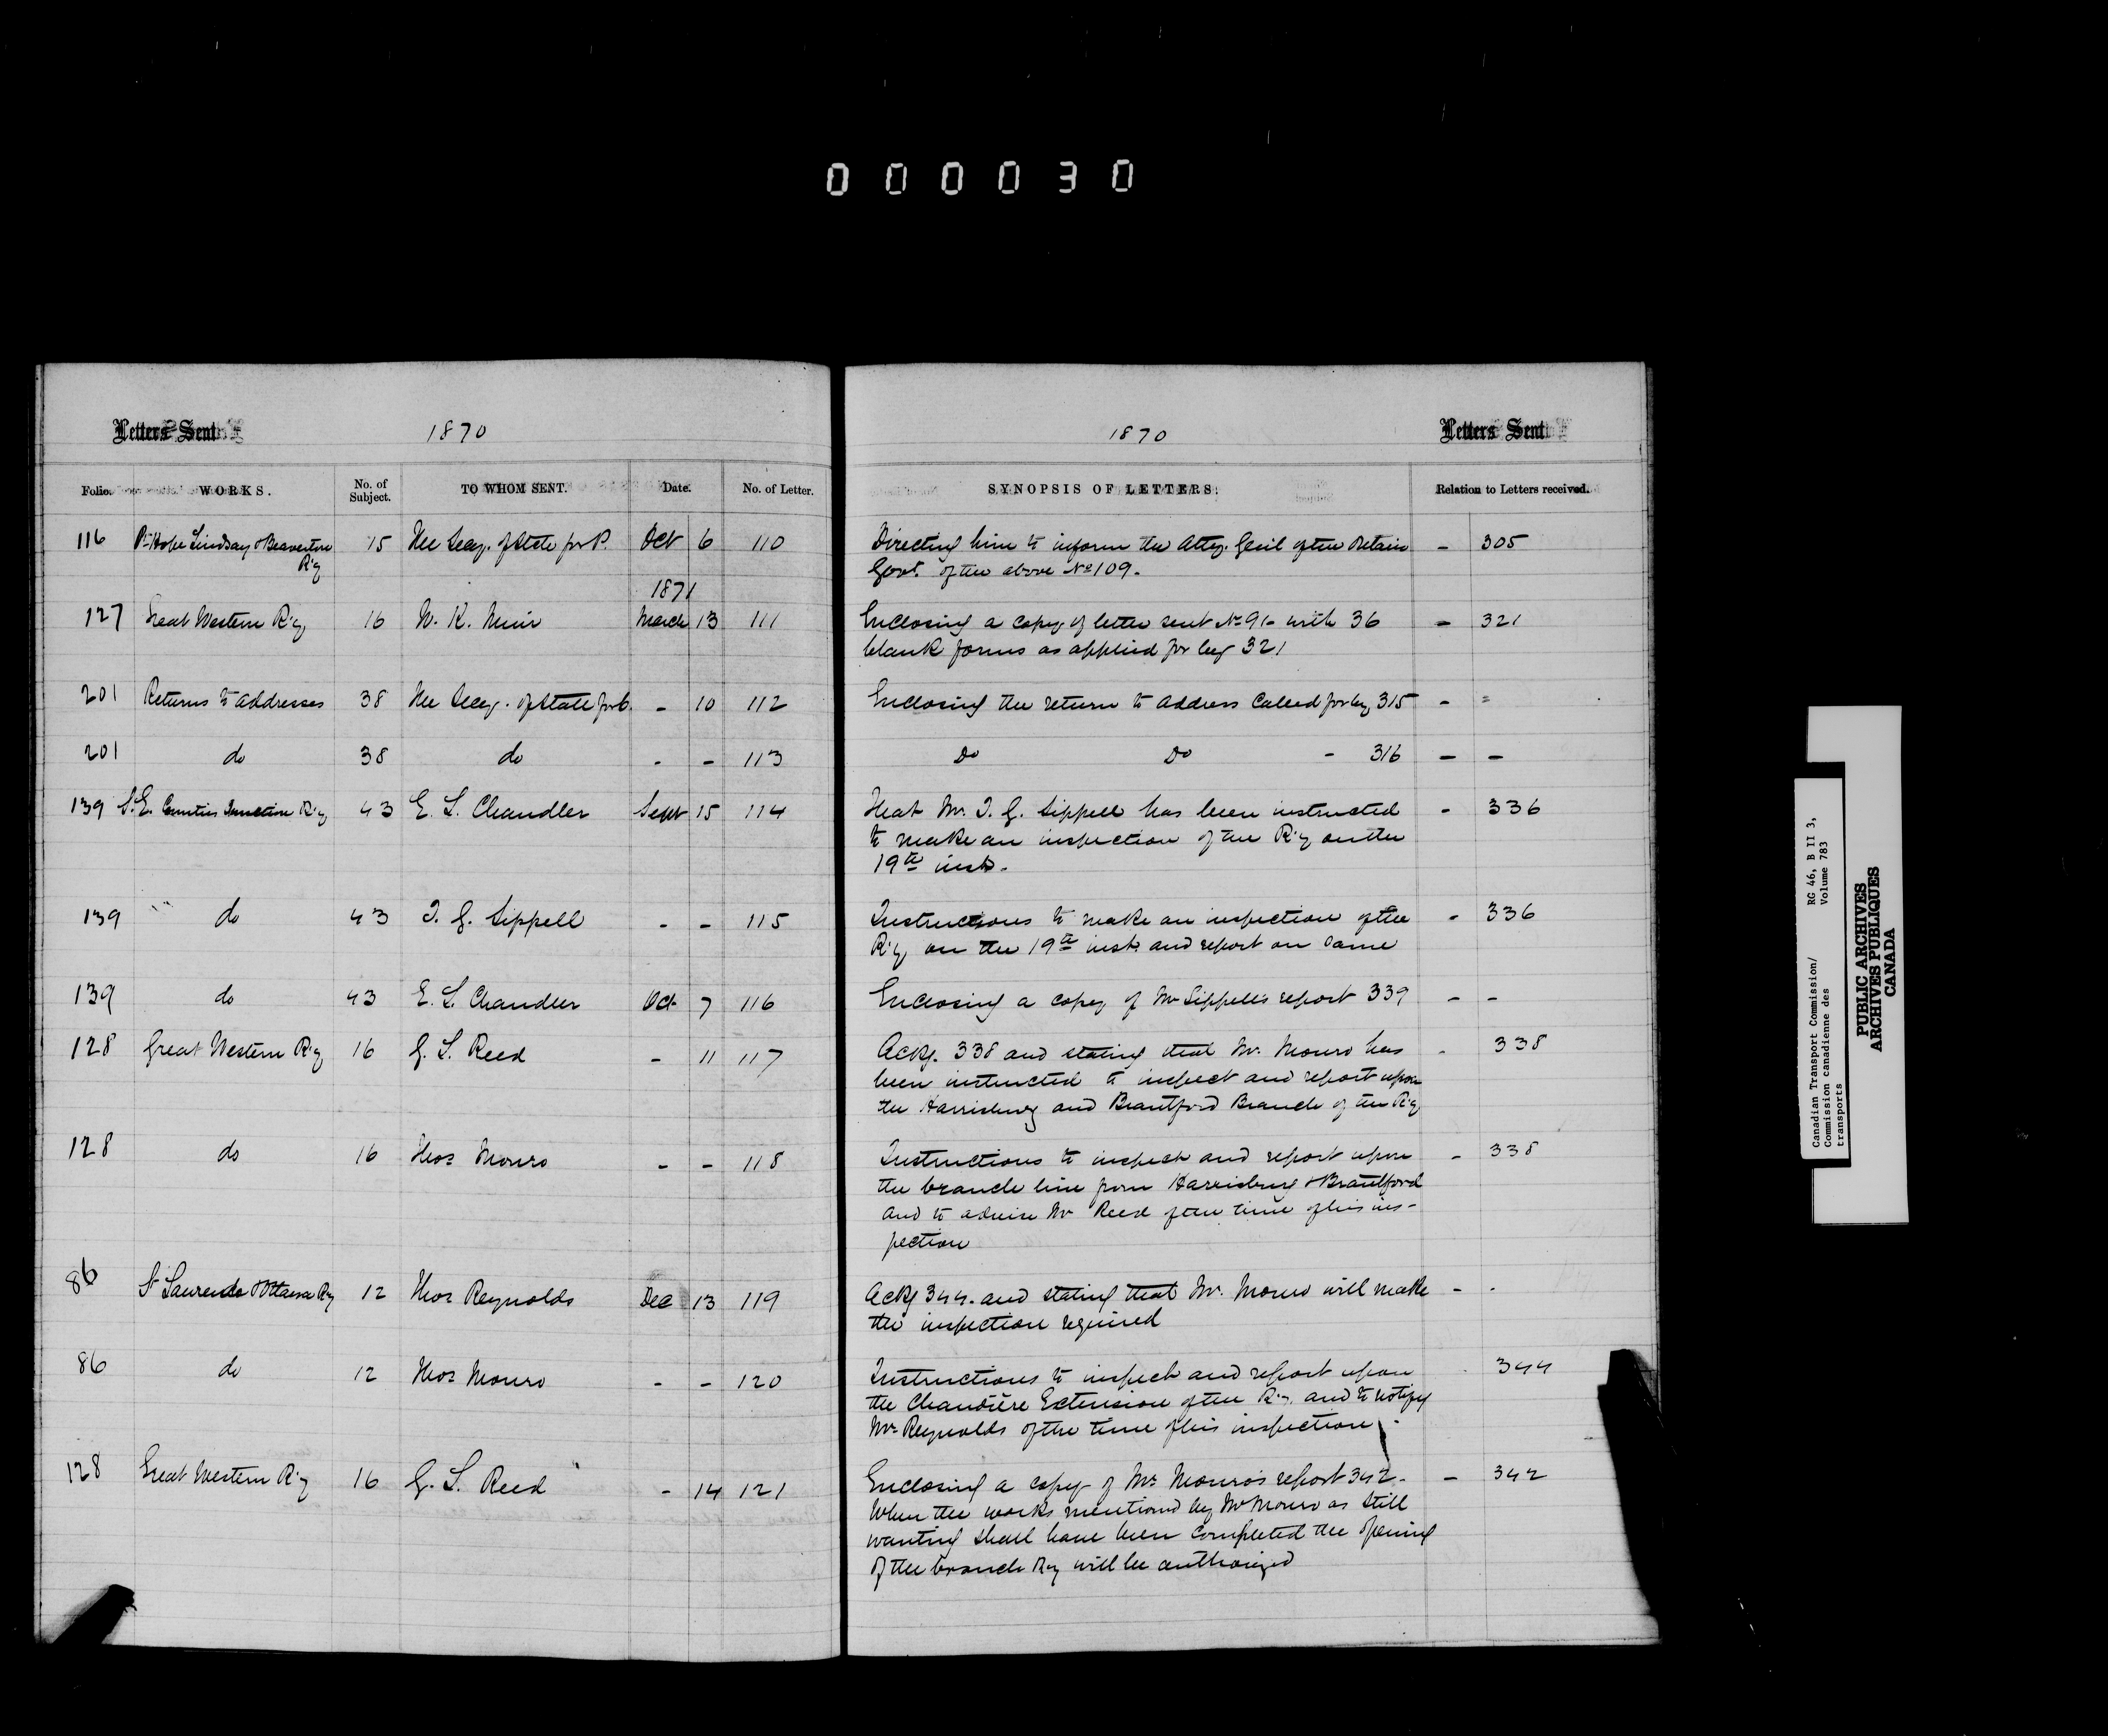 000030
Letters Sent
1870
Folio. WORKS. No. of Subject. TO WHOM SENT. Date. No. of Letter.
116 Pt Hope Lindsay & Beaverton Ry 15 The Secy. of State for P. Oct 6 110
1871
127 Great Western Ry 16 W. K. Muir March 13 111
201 Returns to Addresses 38 The Secy. of State for C. - 10 112
201 do 38 do - - 113
139 S. E. Counties Junction Ry 43 E. L. Chandler Sept 15 114
139 " do 43 T. G. Sippell - - 115
139 do 43 E. L. Chandler Oct 7 116
128 Great Western Ry 16 G. L. Reed - 11 117
128 do 16 Thos Monro - - 118
86 St Lawrence & Ottawa Ry 12 Thos Reynolds Dec 13 119
86 do 12 Thos Monro - - 120
128 Great Western Ry 16 G. L. Reed - 14 121
1870
Letters Sent
SYNOPSIS OF LETTERS. Relation to Letters received.
Directing him to inform the Atty. Genl of the Ontario - 305
Govt. of the above No 109.
Enclosing a copy of letter sent No 91- with 36 - 321
blank forms as applied for by 321
Enclosing the return to address called for by 315 - =
Do Do - 316 - -
That Mr. T. G. Sippell has been instructed - 336
to make an inspection of the Ry on the
19th inst.
Instructions to make an inspection of the - 336
Ry on the 19th inst. and report on same
Enclosing a copy of Mr Sippell's report 339 - -
Ackg. 338 and stating that Mr. Monro has - 338
been instructed to inspect and report upon
the Harrisburg and Brantford Branch of the Ry
Instructions to inspect and report upon - 338
the branch line from Harrisburg & Brantford
and to advise Mr Reed of the time of his ins-
pection
Ackg 344. and stating that Mr. Monro will make - -
the inspection required
Instructions to inspect and report upon - 344
the Chaudière Extension of the Ry. and to notify
Mr Reynolds of the time of his inspection -
Enclosing a copy of Mr Monro's report 342. - 342
When the works mentiond by Mr Monro as still
wanting shall have been completed the opening
of the branch Ry will be authorized
Canadian Transport Commission/ RG 46, B II 3,
Commission canadienne des Volume 783
transports
PUBLIC ARCHIVES
ARCHIVES PUBLIQUES
CANADA